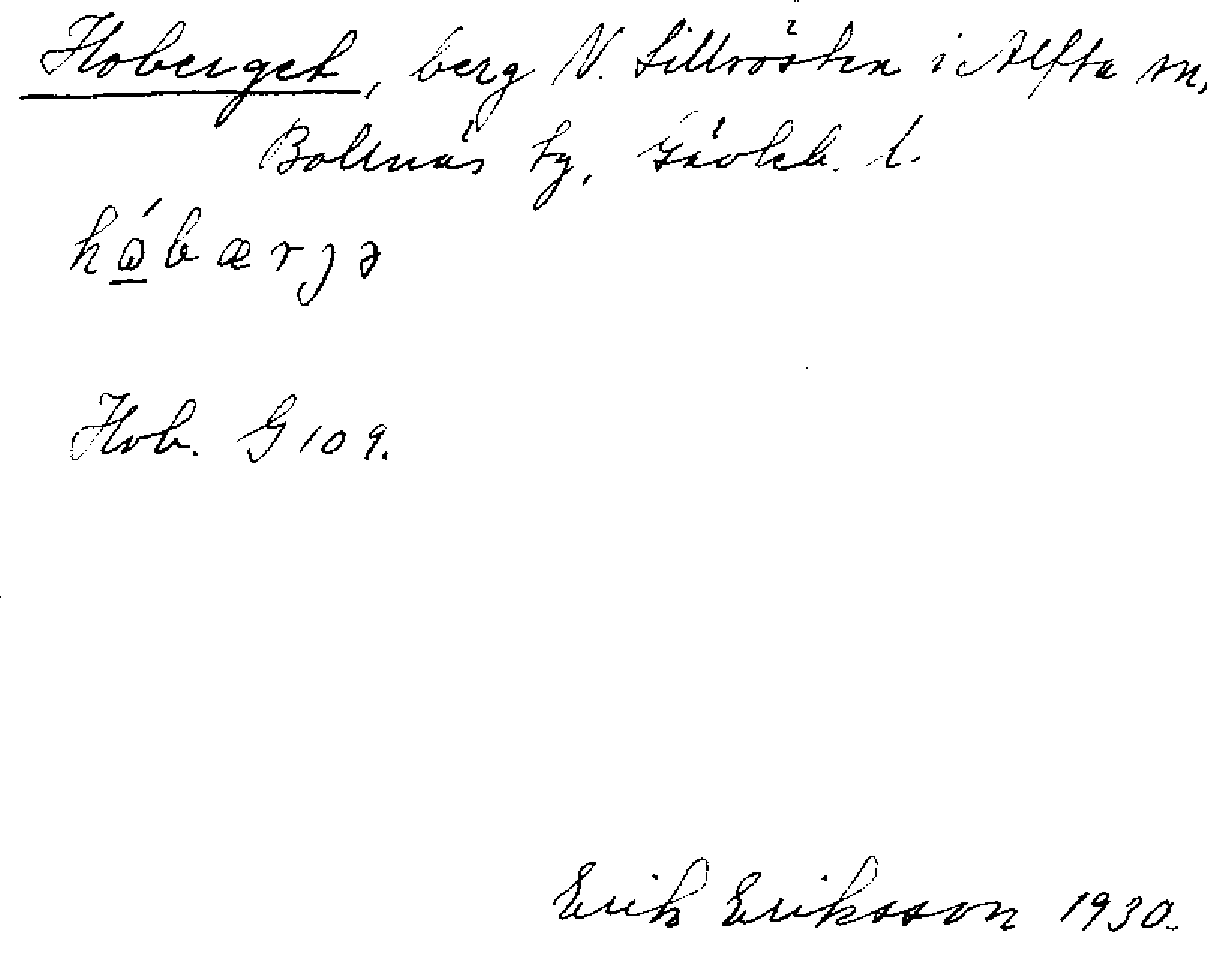 Hoberget, berg N. Lillrösten i Alfta sn,
Bollnäs tg, Gävleb. l.
hώ̱bærjə
Hob. G109.
Erik Eriksson 1930.